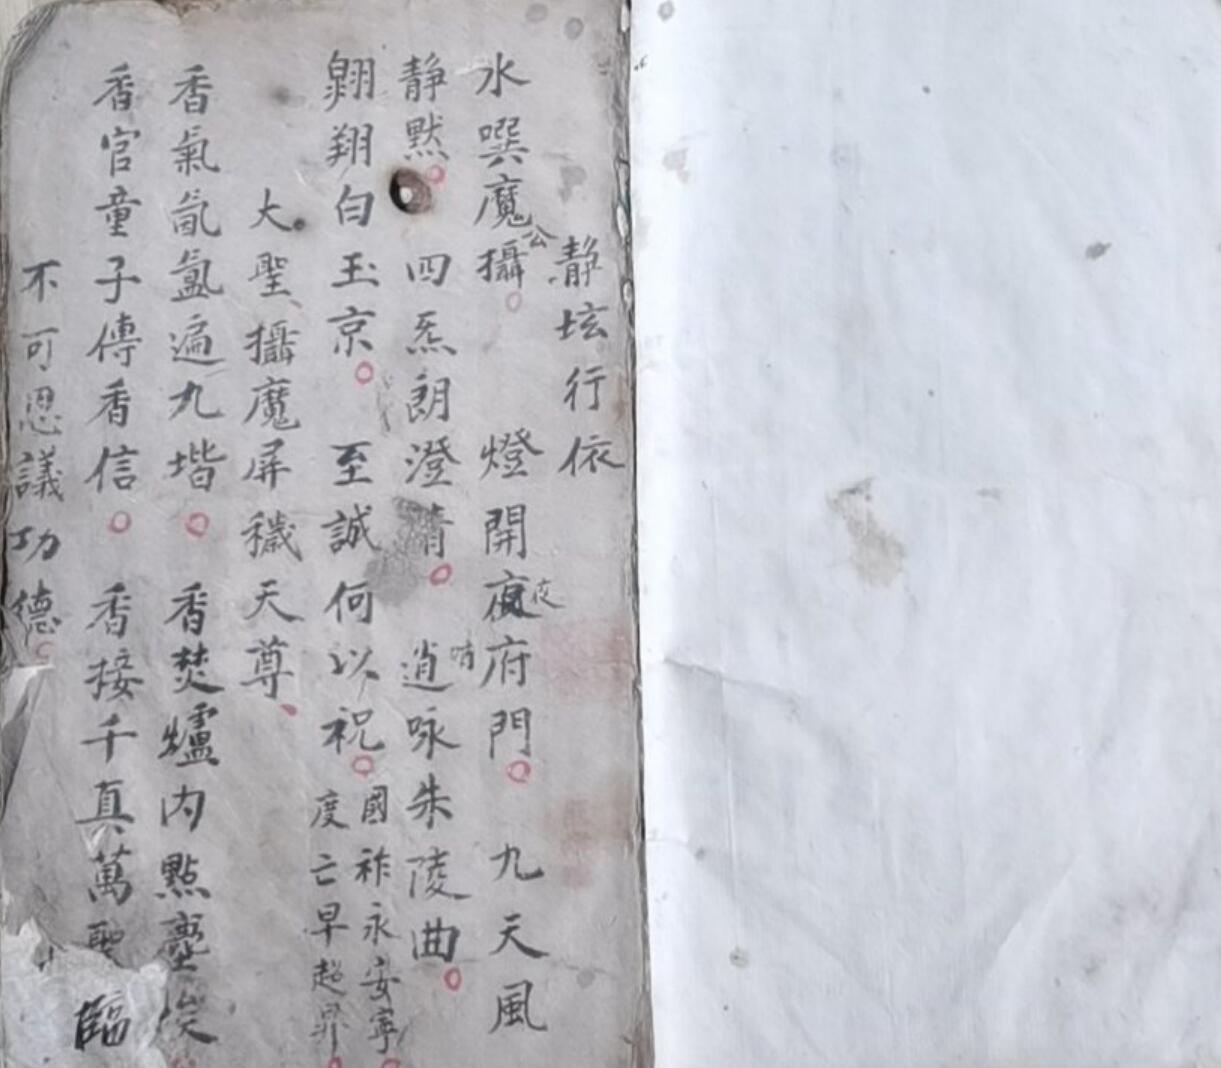 靜坛行依
水噀魔攝公 燈開夜夜府門 九天風
靜默 四炁朗澄清 逍咏朱陵曲
翱翔白玉京 至誠何以祝 國祚永安寧
度亡早超昇
大聖攝魔屏穢天尊
香氣氤氳遍九堦 香焚爐內點塵埃
香官童子傳香信 香接千真萬聖臨
不可思議功德